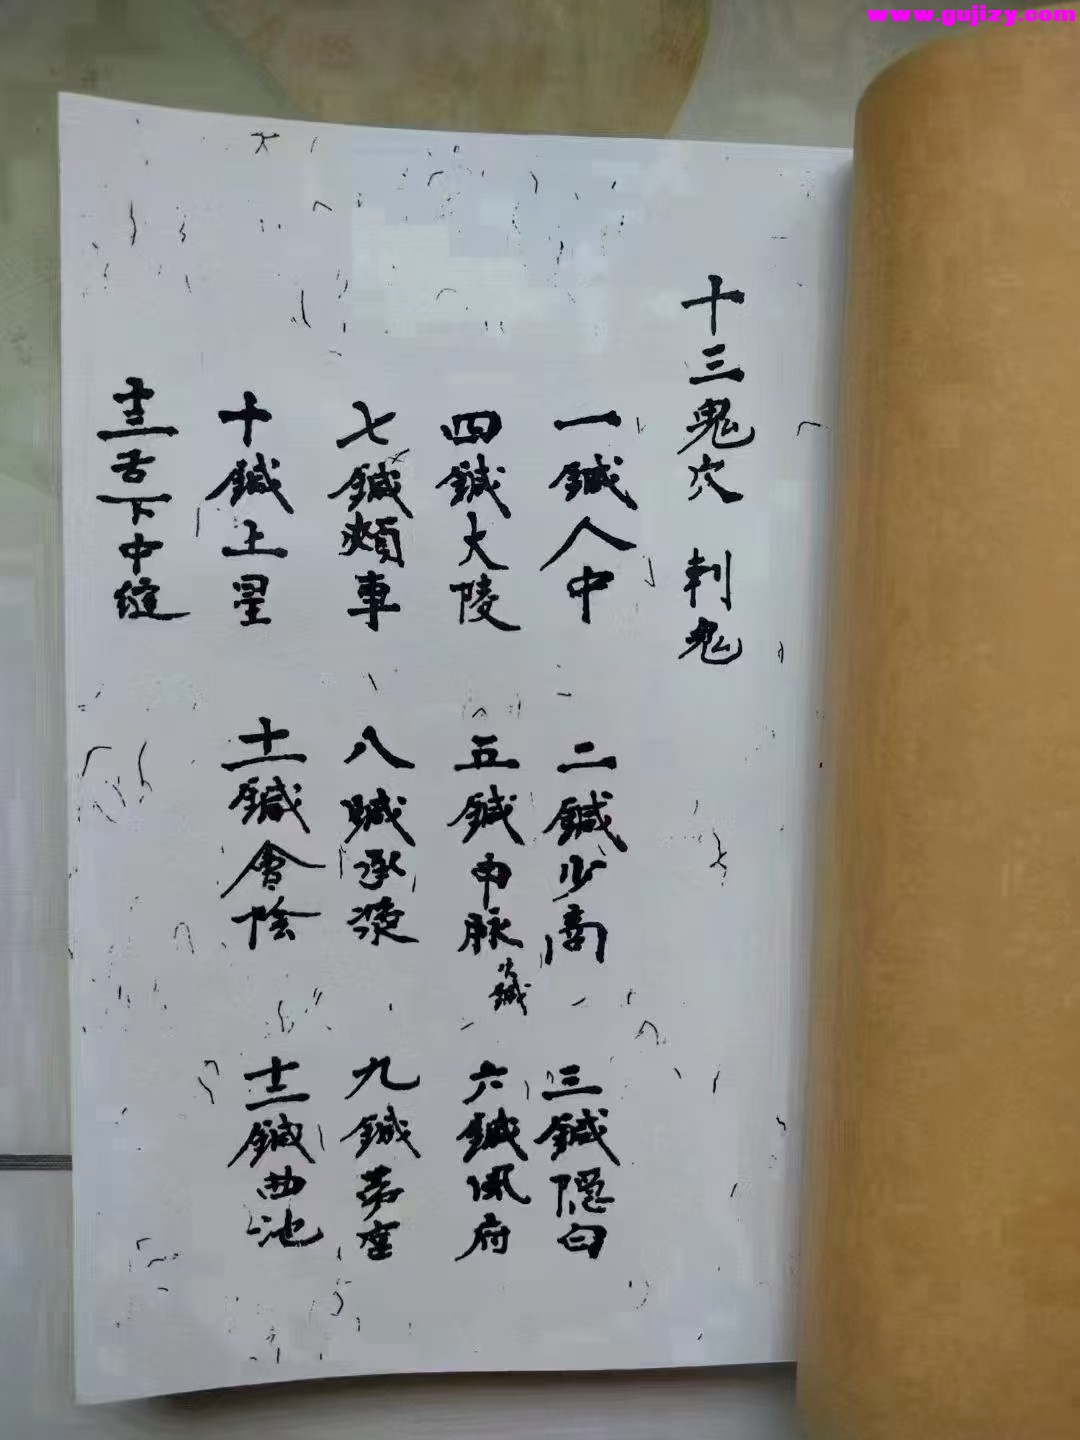 www.gujizy.com
十三鬼穴 刺鬼
一鍼人中 二鍼少商 三鍼隐白
四鍼大陵 五鍼申脉 火鍼 六鍼風府
七鍼頰車 八鍼承漿 九鍼劳宫
十鍼上星 十一鍼會陰 十二鍼曲池
十三舌下中缝